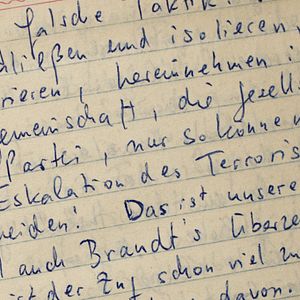 falsche Taktik!
ließen und isolieren,
rieren, hereinnehmen i
emeinschaft, die Gesell
Partei, nur so können
Eskalation des Terroris
eiden! Das ist unsere
auch Brandt's Überze
ist der Zug schon viel zu
davon.